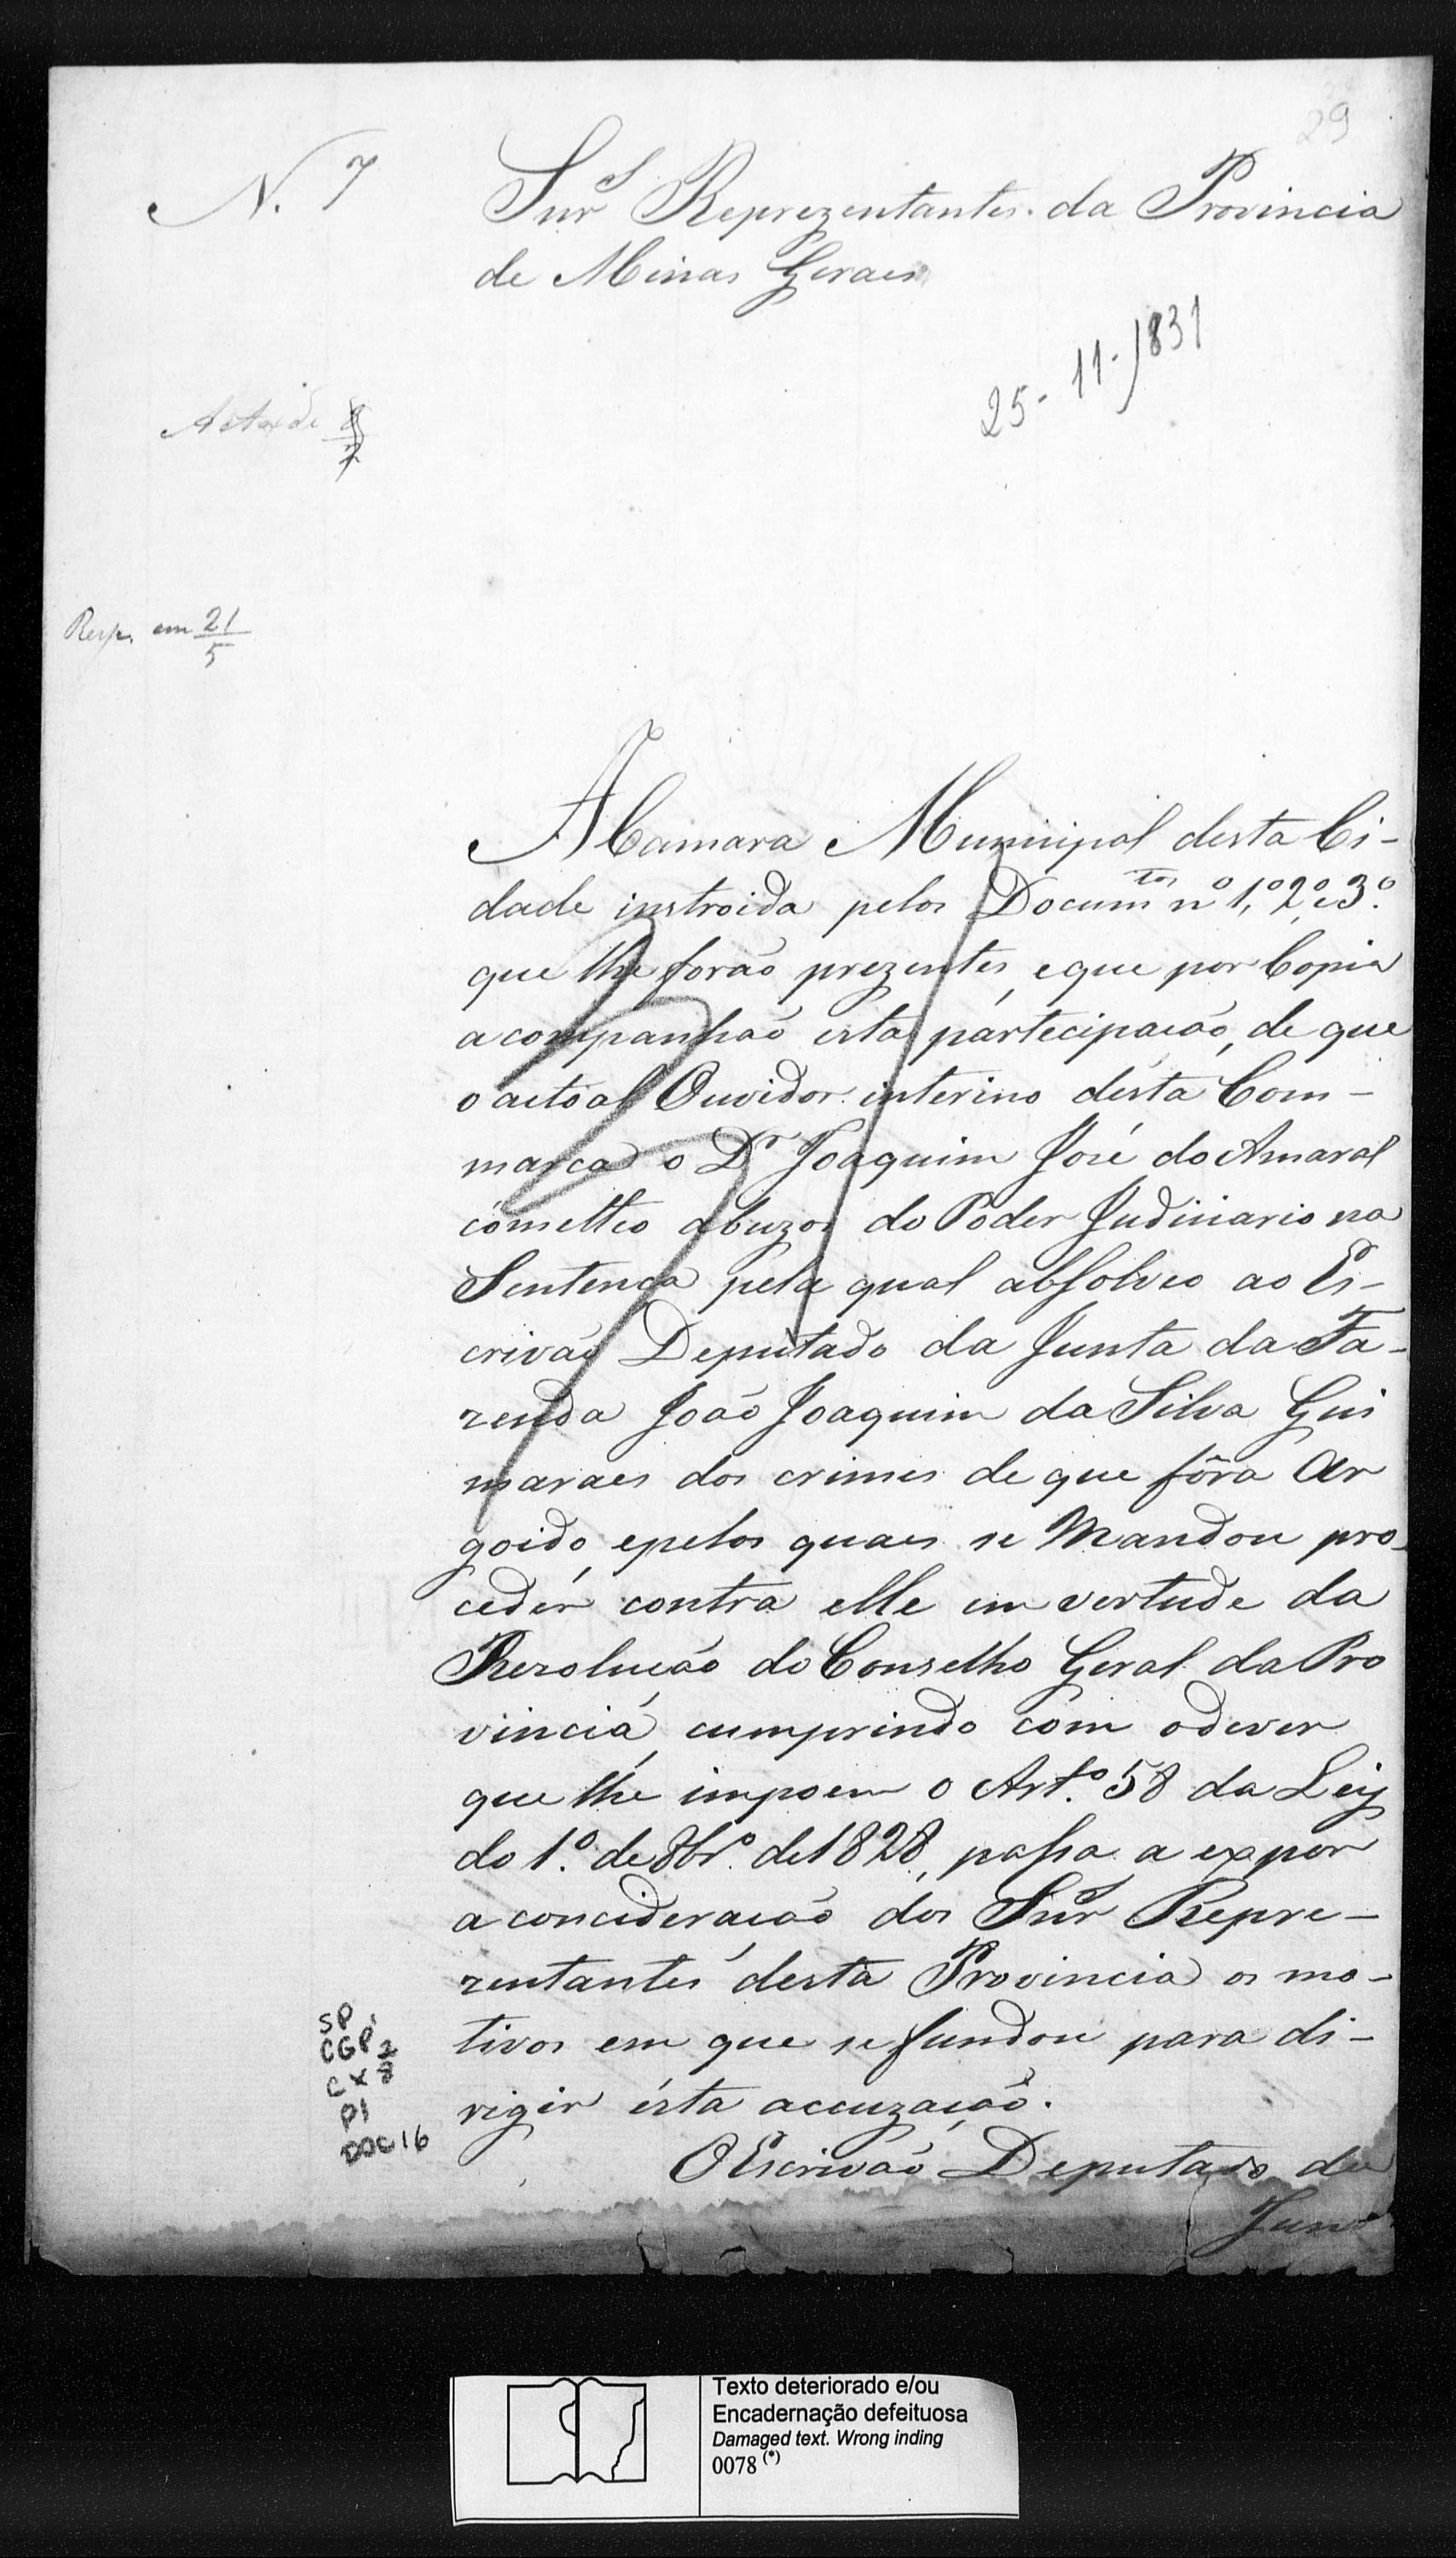 29
N. 7
Snr.s Reprezentantes da Provincia
de Minas Geraes
25-11-1831
Acta de 8/7
Resp. em 21/5
A Camara Municipal desta Ci-
dade instroida pelos Docum.tos nº 1º, 2º, e 3º.
que lhe forão prezentes, e que por Copia
acompanhão esta partecipação, de que
o actoal Ouvidor interino désta Com-
marca o Dr. Joaquim José do Amaral
cometteo abuzos do Poder Judiciario na
Sentença pela qual absolveo ao Es-
crivão Deputado da Junta da Fa-
zenda João Joaquim da Silva Gui
maraes dos crimes de que fôra Ar
goido, e pelos quaes se Mandou pro-
cedér contra elle em vertude da
Rezolução do Conselho Geral da Pro
vincia, cumprindo com o dever
que lhe impoem o Art.º 58 da Ley
do 1.º de 8br.º de 1828, passa a expor
a concideração dos Snr.s Repre-
zentantes desta Provincia os mo-
tivos em que se fundou para di-
rigir ésta accuzação.
O Escrivão Deputado da
Junta
SP
CGP1
CX 2
P1
DOC 16
Texto deteriorado e/ou
Encadernação defeituosa
Damaged text. Wrong inding
0078 (*)